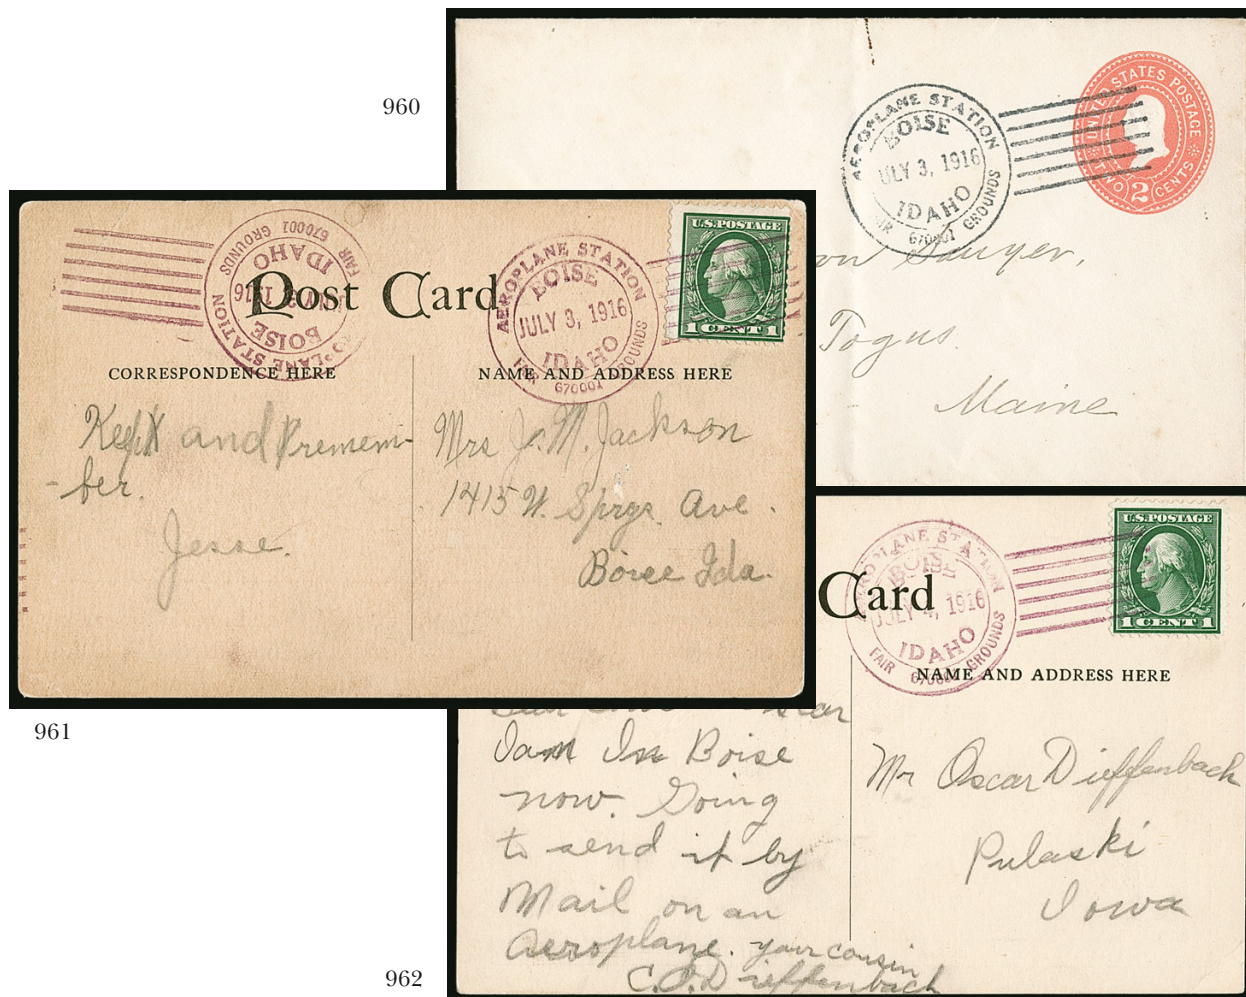 960
AEROPLANE STATION
BOISE
JULY 3, 1916
IDAHO
FAIR GROUNDS
670001
UNITED STATES POSTAGE
TWO 2 CENTS
on Sawyer,
Togus.
Maine
AEROPLANE STATION
BOISE
1916
IDAHO
FAIR GROUNDS
670001
Post Card
AEROPLANE STATION
BOISE
JULY 3, 1916
IDAHO
FAIR GROUNDS
670001
U.S. POSTAGE
1 CENT 1
CORRESPONDENCE HERE
NAME AND ADDRESS HERE
and
remem-
-ber.
Jesse.
Mrs J. M. Jackson
1415 W. Sprgs. Ave.
Boice Ida.
961
Card
AEROPLANE STATION
BOISE
JULY 4, 1916
IDAHO
FAIR GROUNDS
U.S. POSTAGE
1 CENT 1
NAME AND ADDRESS HERE
I am In Boise
now. Going
to send it by
Mail on an
Aeroplane. your cousin
C. O. Dieffenbach
Mr Oscar Dieffenbach
Pulaski
Iowa
962